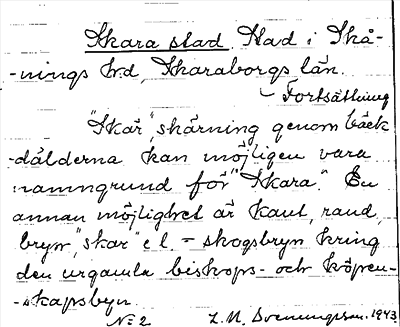 Skara stad. Stad i Skå-
-nings hd, Skaraborgs län.
Fortsättning
"Skär", skärning genom bäck
-dälderna kan möjligen vara
namngrund för "Skara." En
annan möjlighet är kant, rand,
bryn, "skar" e l. = skogsbryn kring
den urgamla biskops- och köpen-
-skapsbyn.
No 2 L. M. Svenungsson. 1943